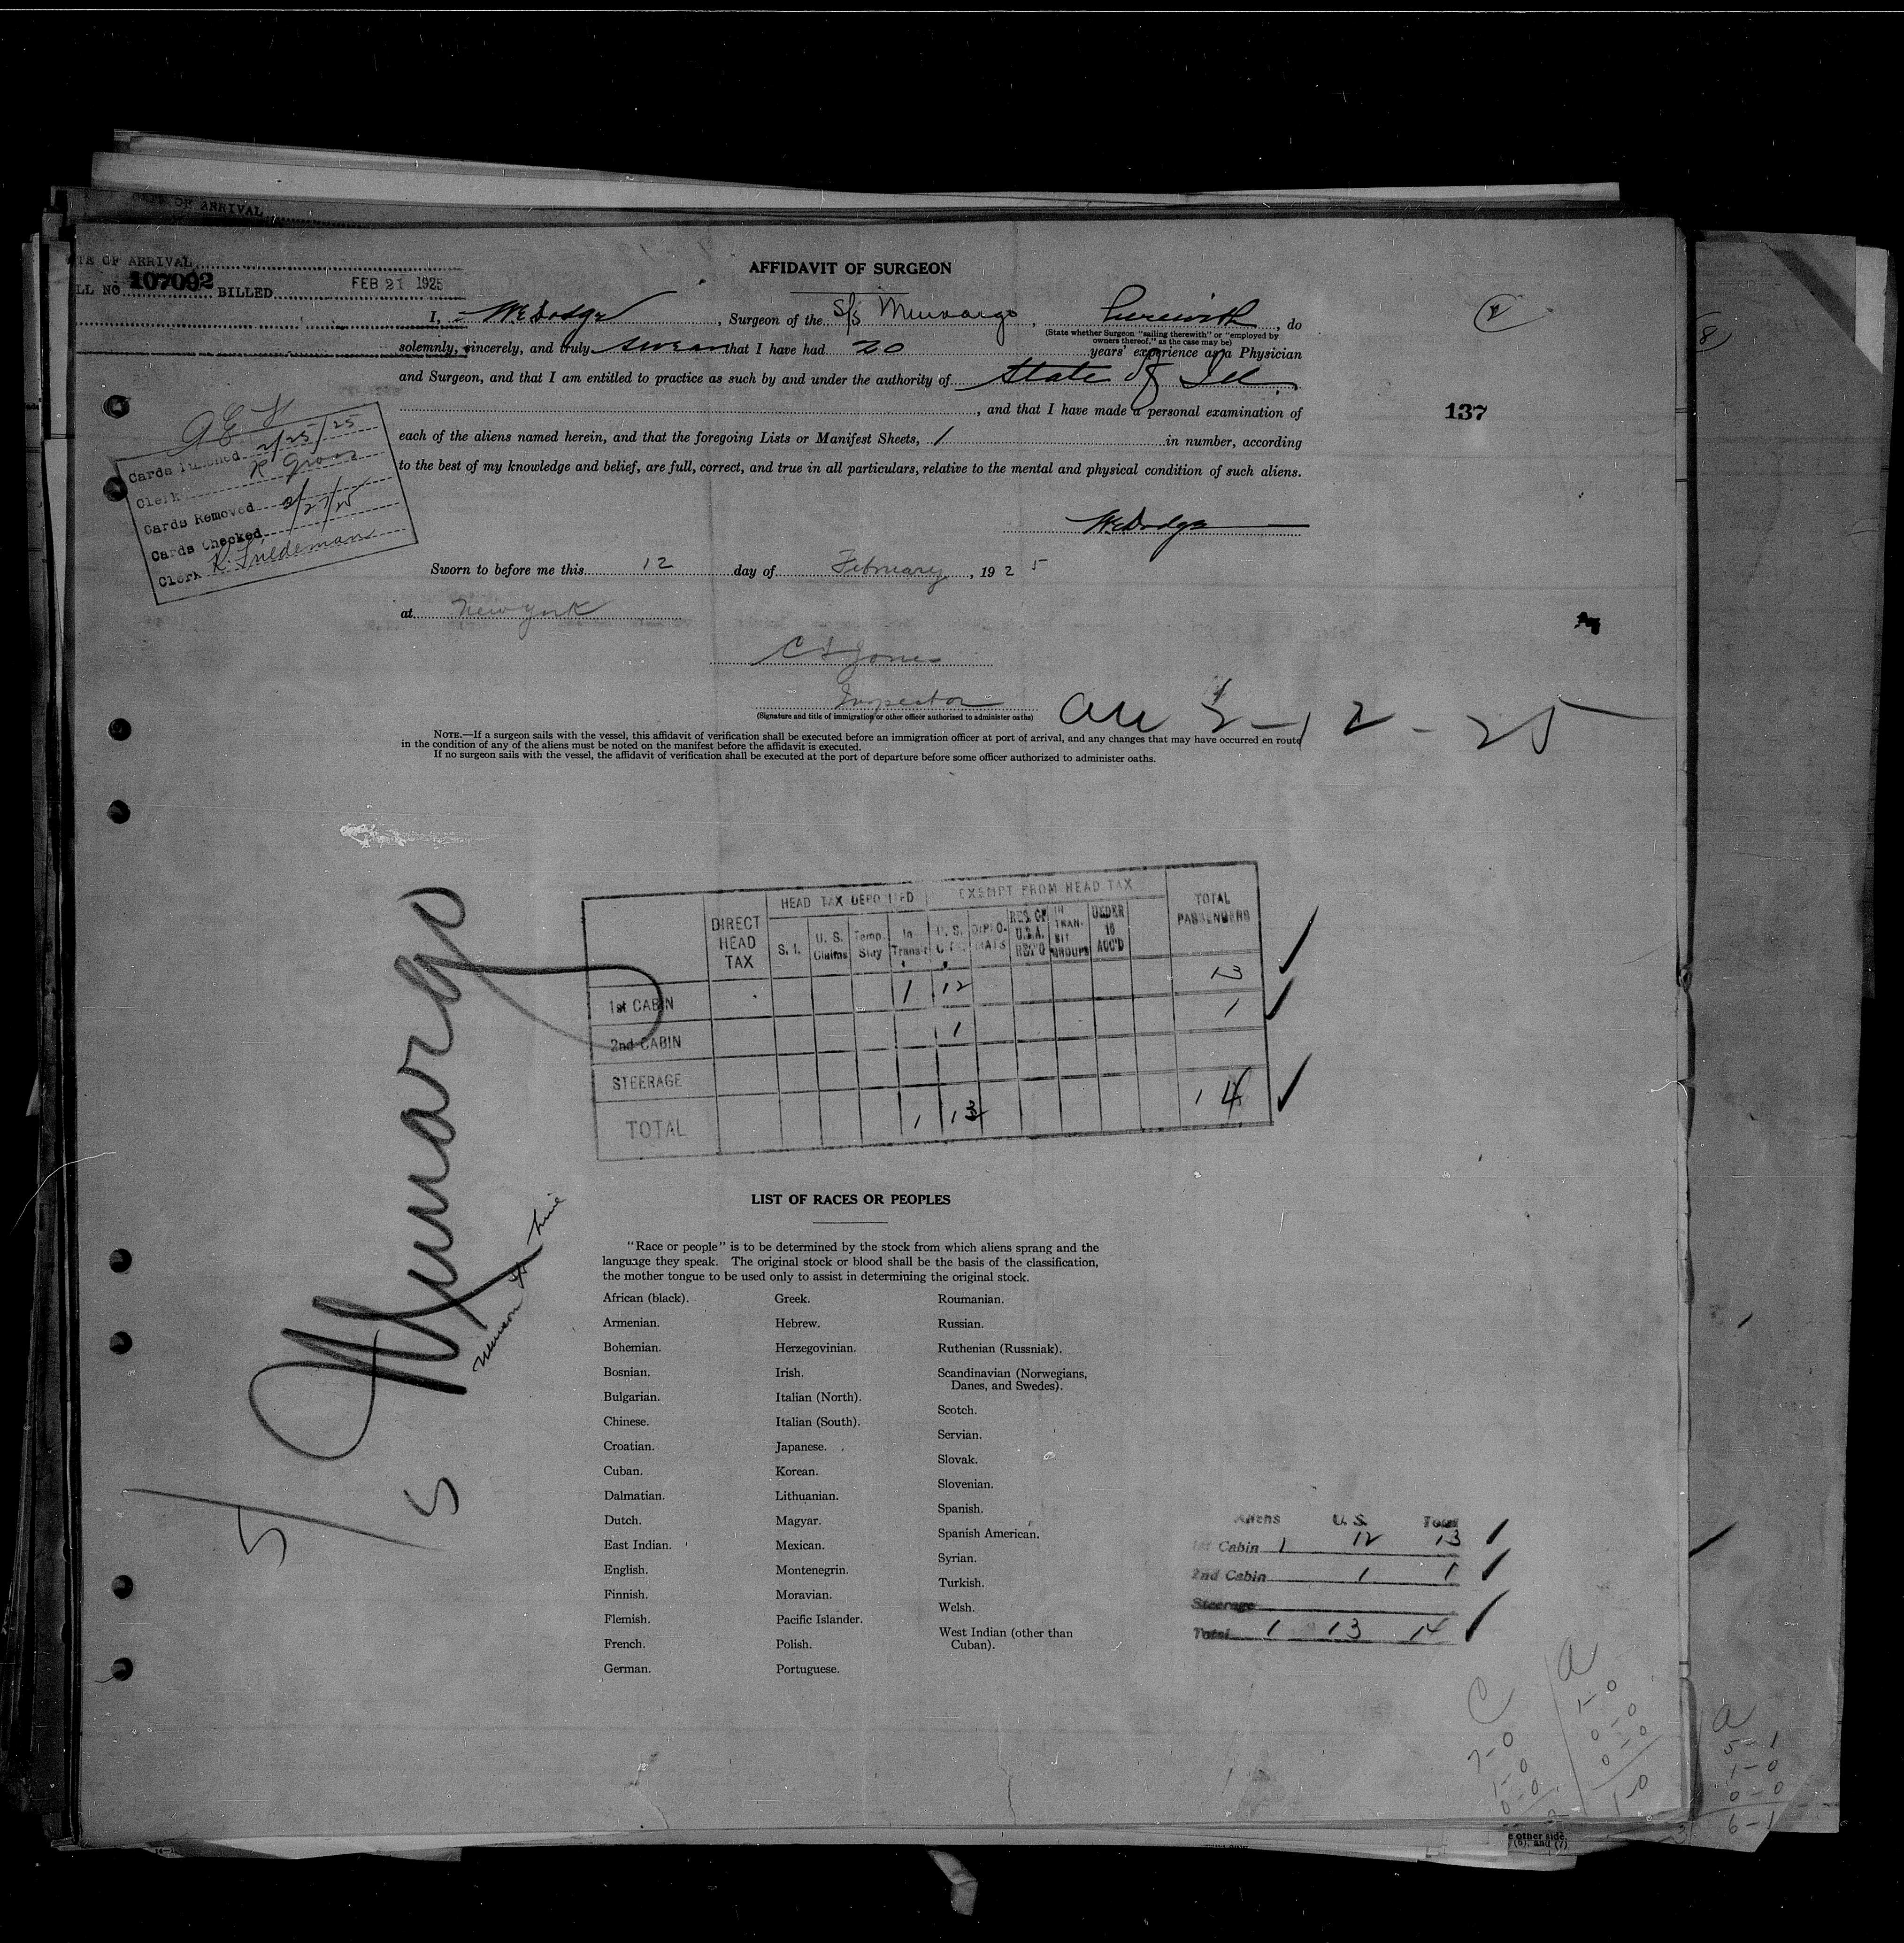 OF ARRIVAL
TE OF ARRIVAL
LL NO 107092 BILLED FEB 21 1925
AFFIDAVIT OF SURGEON
I, W E Dodge, Surgeon of the S/S Munargo, herewith, do
(State whether Surgeon "sailing therewith" or "employed by
owners thereof," as the case may be)
solemnly, sincerely, and truly swear that I have had 20 years' experience as a Physician
and Surgeon, and that I am entitled to practice as such by and under the authority of State of Ill
, and that I have made a personal examination of
137
each of the aliens named herein, and that the foregoing Lists or Manifest Sheets, 1 in number, according
to the best of my knowledge and belief, are full, correct, and true in all particulars, relative to the mental and physical condition of such aliens.
W E Dodge
Cards Punched 2/25/25
Clerk R Gross
Cards Removed
Cards Checked 2/27/25
Clerk R. Friedeman
Sworn to before me this 12 day of February, 1925
at New York
C L Jones
Inspector
(Signature and title of immigration or other officer authorised to administer oaths)
Arr 2-12-25
NOTE.—If a surgeon sails with the vessel, this affidavit of verification shall be executed before an immigration officer at port of arrival, and any changes that may have occurred en route
in the condition of any of the aliens must be noted on the manifest before the affidavit is executed.
If no surgeon sails with the vessel, the affidavit of verification shall be executed at the port of departure before some officer authorized to administer oaths.
Munargo
Munson SS Line
HEAD TAX DEPOSITED EXEMPT FROM HEAD TAX
DIRECT HEAD TAX S. I. U. S. Claims Temp. Stay In Transit U. S. Cit. DIPLOMATS RES. OF U.S.A. RET'G IN TRANSIT GROUPS UNDER 16 ACC'D TOTAL PASSENGERS
1st CABIN 1 12 13
2nd CABIN 1 1
STEERAGE
TOTAL 1 13 14
LIST OF RACES OR PEOPLES
"Race or people" is to be determined by the stock from which aliens sprang and the
language they speak. The original stock or blood shall be the basis of the classification,
the mother tongue to be used only to assist in determining the original stock.
African (black).
Armenian.
Bohemian.
Bosnian.
Bulgarian.
Chinese.
Croatian.
Cuban.
Dalmatian.
Dutch.
East Indian.
English.
Finnish.
Flemish.
French.
German.
Greek.
Hebrew.
Herzegovinian.
Irish.
Italian (North).
Italian (South).
Japanese.
Korean.
Lithuanian.
Magyar.
Mexican.
Montenegrin.
Moravian.
Pacific Islander.
Polish.
Portuguese.
Roumanian.
Russian.
Ruthenian (Russniak).
Scandinavian (Norwegians,
Danes, and Swedes).
Scotch.
Servian.
Slovak.
Slovenian.
Spanish.
Spanish American.
Syrian.
Turkish.
Welsh.
West Indian (other than
Cuban).
Aliens U. S. Total
1st Cabin 1 12 13
2nd Cabin 1 1
Steerage
Total 1 13 14
C
7-0
1-0
0-0
a
1-0
0-0
0-0
1-0
a
5-1
1-0
0-0
6-1
e other side.
(6), and (7)